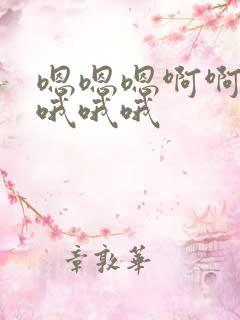 嗯嗯嗯啊啊
哦哦哦
章敦华